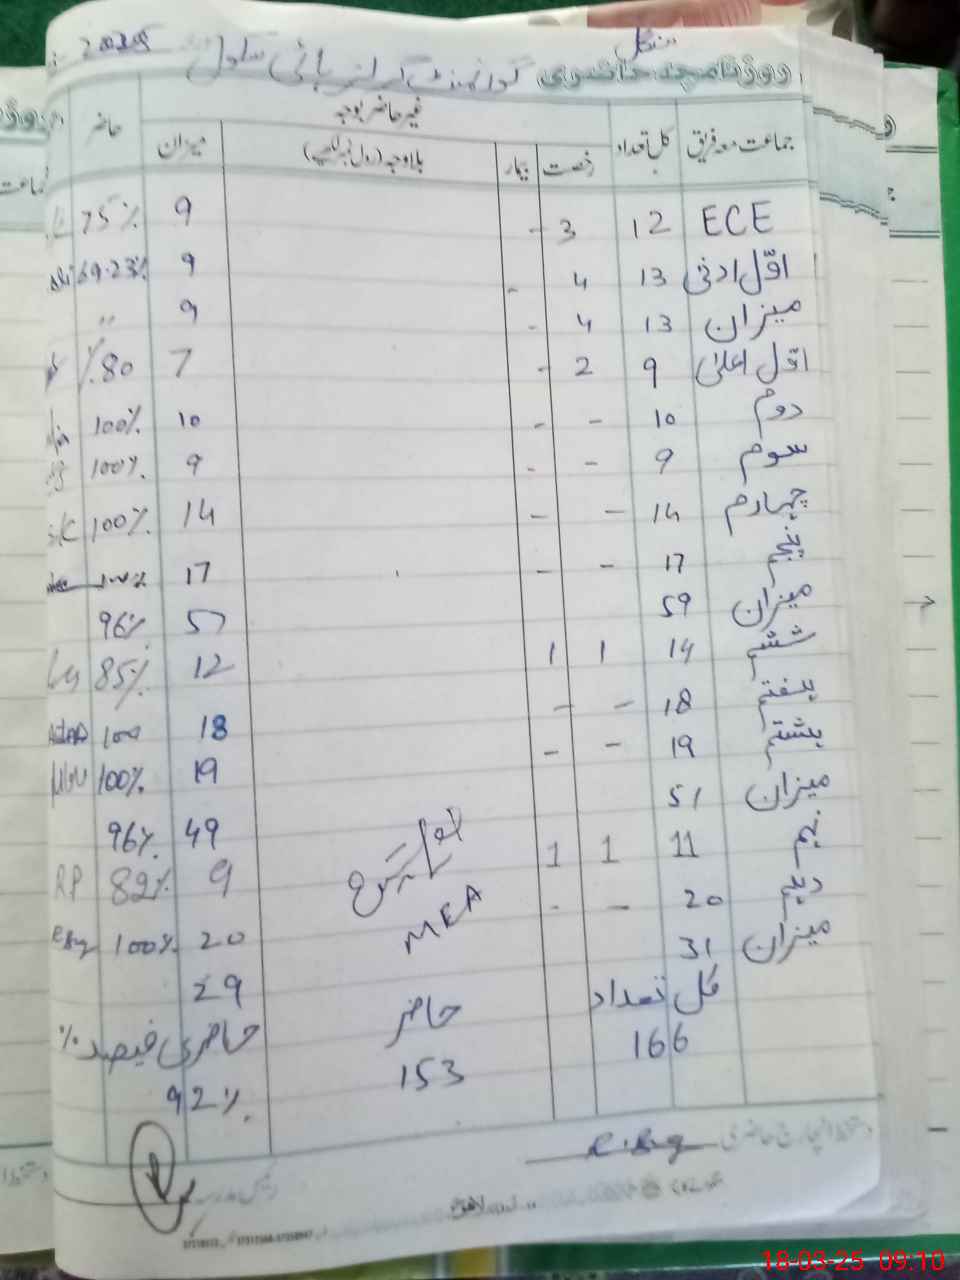 منگل
روزنامچہ حاضری گورنمنٹ گرلز ہائی سکول
جماعت معہ فریق کل تعداد غیر حاضر بوجہ حاضر
رخصت بیمار بلاوجہ (رول نمبر لکھیے) میزان
ECE 12 3 - 9 75%
اوّل ادنیٰ 13 4 - 9 69.23%
میزان 13 4 - 9 "
اوّل اعلیٰ 9 2 - 7 80%
دوم 10 - - 10 100%
سوم 9 - - 9 100%
چہارم 14 - - 14 100%
پنجم 17 - - 17 100%
میزان 59 57 96%
ششم 14 1 1 12 85%
ہفتم 18 - - 18 100
ہشتم 19 - - 19 100%
میزان 51 49 96%
نہم 11 1 1 9 82% RP
دہم 20 - - 20 100%
میزان 31 29
MEA
کل تعداد حاضر حاضری فیصد %
166 153 92%
دستخط انچارج حاضری
رئیس مدرسہ
لاہور
18-03-25 09:10